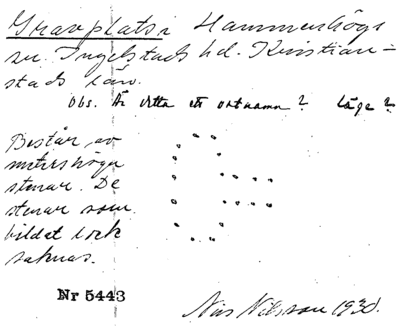 Gravplats i Hammenhögs
sn. Ingelstads hd. Kristian-
stads län.
Obs. Är detta ett ortnamn? Läge?
Består av
metershöga
stenar. De
stenar som
bildat lock
saknas.
Nr 5443
Nils Nilsson 1930.